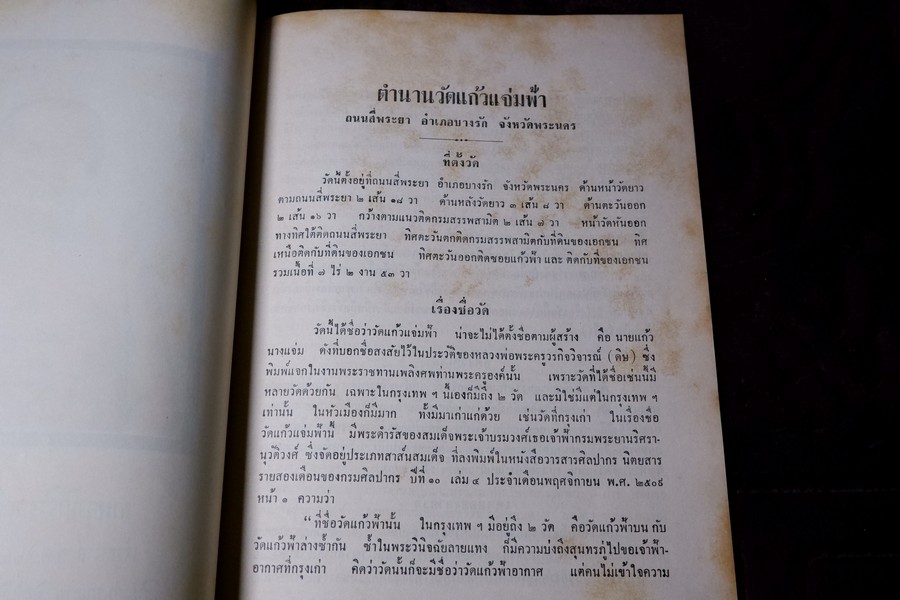 ตำนานวัดแก้วแจ่มฟ้า
ถนนสี่พระยา อำเภอบางรัก จังหวัดพระนคร
ที่ตั้งวัด
วัดนี้ตั้งอยู่ที่ถนนสี่พระยา อำเภอบางรัก จังหวัดพระนคร ด้านหน้าวัดยาว
ตามถนนสี่พระยา ๒ เส้น ๑๘ วา ด้านหลังวัดยาว ๓ เส้น ๘ วา ด้านตะวันออก
๒ เส้น ๑๖ วา กว้างตามแนวติดกรมสรรพสามิต ๒ เส้น ๗ วา หน้าวัดหันออก
ทางทิศใต้ติดถนนสี่พระยา ทิศตะวันตกติดกรมสรรพสามิตกับที่ดินของเอกชน ทิศ
เหนือติดกับที่ดินของเอกชน ทิศตะวันออกติดซอยแก้วฟ้า และ ติดกับที่ของเอกชน
รวมเนื้อที่ ๗ ไร่ ๒ งาน ๕๓ วา
เรื่องชื่อวัด
วัดนี้ได้ชื่อว่าวัดแก้วแจ่มฟ้า น่าจะไม่ได้ตั้งชื่อตามผู้สร้าง คือ นายแก้ว
นางแจ่ม ดังที่บอกชื่อสงสัยไว้ในประวัติของหลวงพ่อพระครูวรกิจวิจารณ์ (ดิษ) ซึ่ง
พิมพ์แจกในงานพระราชทานเพลิงศพท่านพระครูองค์นั้น เพราะวัดที่ได้ชื่อเช่นนี้มี
หลายวัดด้วยกัน เฉพาะในกรุงเทพ ฯ นี้เองก็มีถึง ๒ วัด และมิใช่มีแต่ในกรุงเทพ ฯ
เท่านั้น ในหัวเมืองก็มีมาก ทั้งมีมาเก่าแก่ด้วย เช่นวัดที่กรุงเก่า ในเรื่องชื่อ
วัดแก้วแจ่มฟ้านี้ มีพระดำรัสของสมเด็จพระเจ้าบรมวงศ์เธอเจ้าฟ้ากรมพระยานริศรา-
นุวัติวงศ์ ซึ่งจัดอยู่ประเภทสาส์นสมเด็จ ที่ลงพิมพ์ในหนังสือวารสารศิลปากร นิตยสาร
รายสองเดือนของกรมศิลปากร ปีที่ ๑๐ เล่ม ๔ ประจำเดือนพฤศจิกายน พ.ศ. ๒๕๐๙
หน้า ๑ ความว่า
“ที่ชื่อวัดแก้วฟ้านั้น ในกรุงเทพ ฯ มีอยู่ถึง ๒ วัด คือวัดแก้วฟ้าบน กับ
วัดแก้วฟ้าล่างซ้ำกัน ซ้ำในพระวินิจฉัยลายแทง ก็มีความบ่งถึงสุนทรภู่ไปขอเจ้าฟ้า-
อากาศที่กรุงเก่า คิดว่าวัดนั้นก็จะมีชื่อว่าวัดแก้วฟ้าอากาศ แต่คนไม่เข้าใจความ